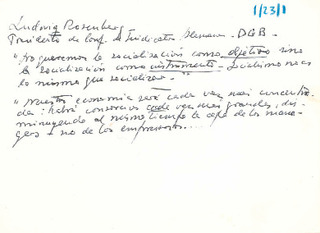 1/23/1
Ludwig Rosenberg
Presidente de Conf. de Sindicatos Alemanes - DGB -
"No queremos la socialización como objetivo sino
la socialización como instrumento. Socialismo no es
lo mismo que socializar - "
"Nuestra economía será cada vez más concentra-
da: habrá consorcios cada vez más grandes, dis-
minuyendo al mismo tiempo la de los mana-
gers + no de los empresarios....